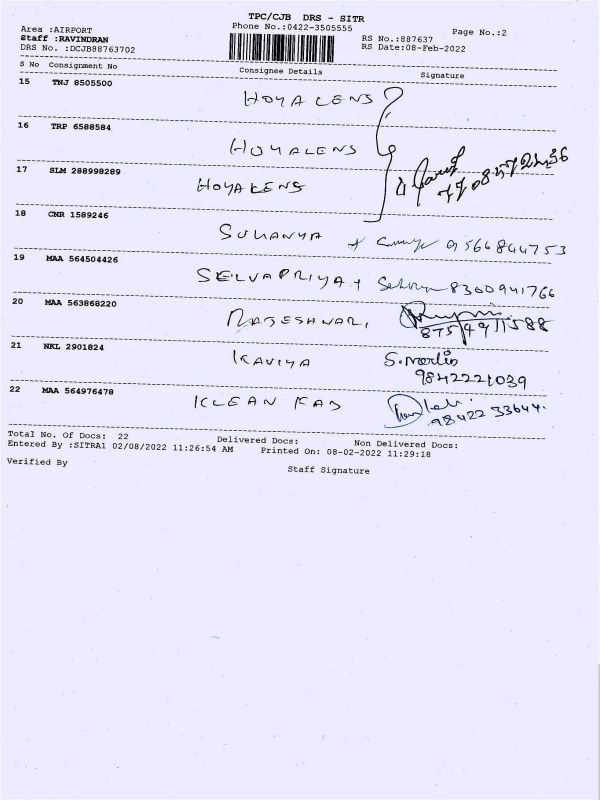 TPC/CJB DRS - SITR
Area :AIRPORT Phone No.:0422-3505555 Page No.:2
Staff :RAVINDRAN RS No.:887637
DRS No. :DCJB88763702 RS Date:08-Feb-2022
S No Consignment No Consignee Details Signature
15 TNJ 8505500 HOYALENS
16 TRP 6588584 HOYALENS
17 SLM 288998289 HOYALENS
18 CNR 1589246 SUKANYA 9566844753
19 MAA 564504426 SELVAPRIYA 8300941766
20 MAA 563868220 RAJESHWARI
21 NKL 2901824 KAVIYA 9842221039
22 MAA 564976478 KLEAN KAD 98422 33644
Total No. Of Docs: 22 Delivered Docs: Non Delivered Docs:
Entered By :SITRA1 02/08/2022 11:26:54 AM Printed On: 08-02-2022 11:29:18
Verified By Staff Signature